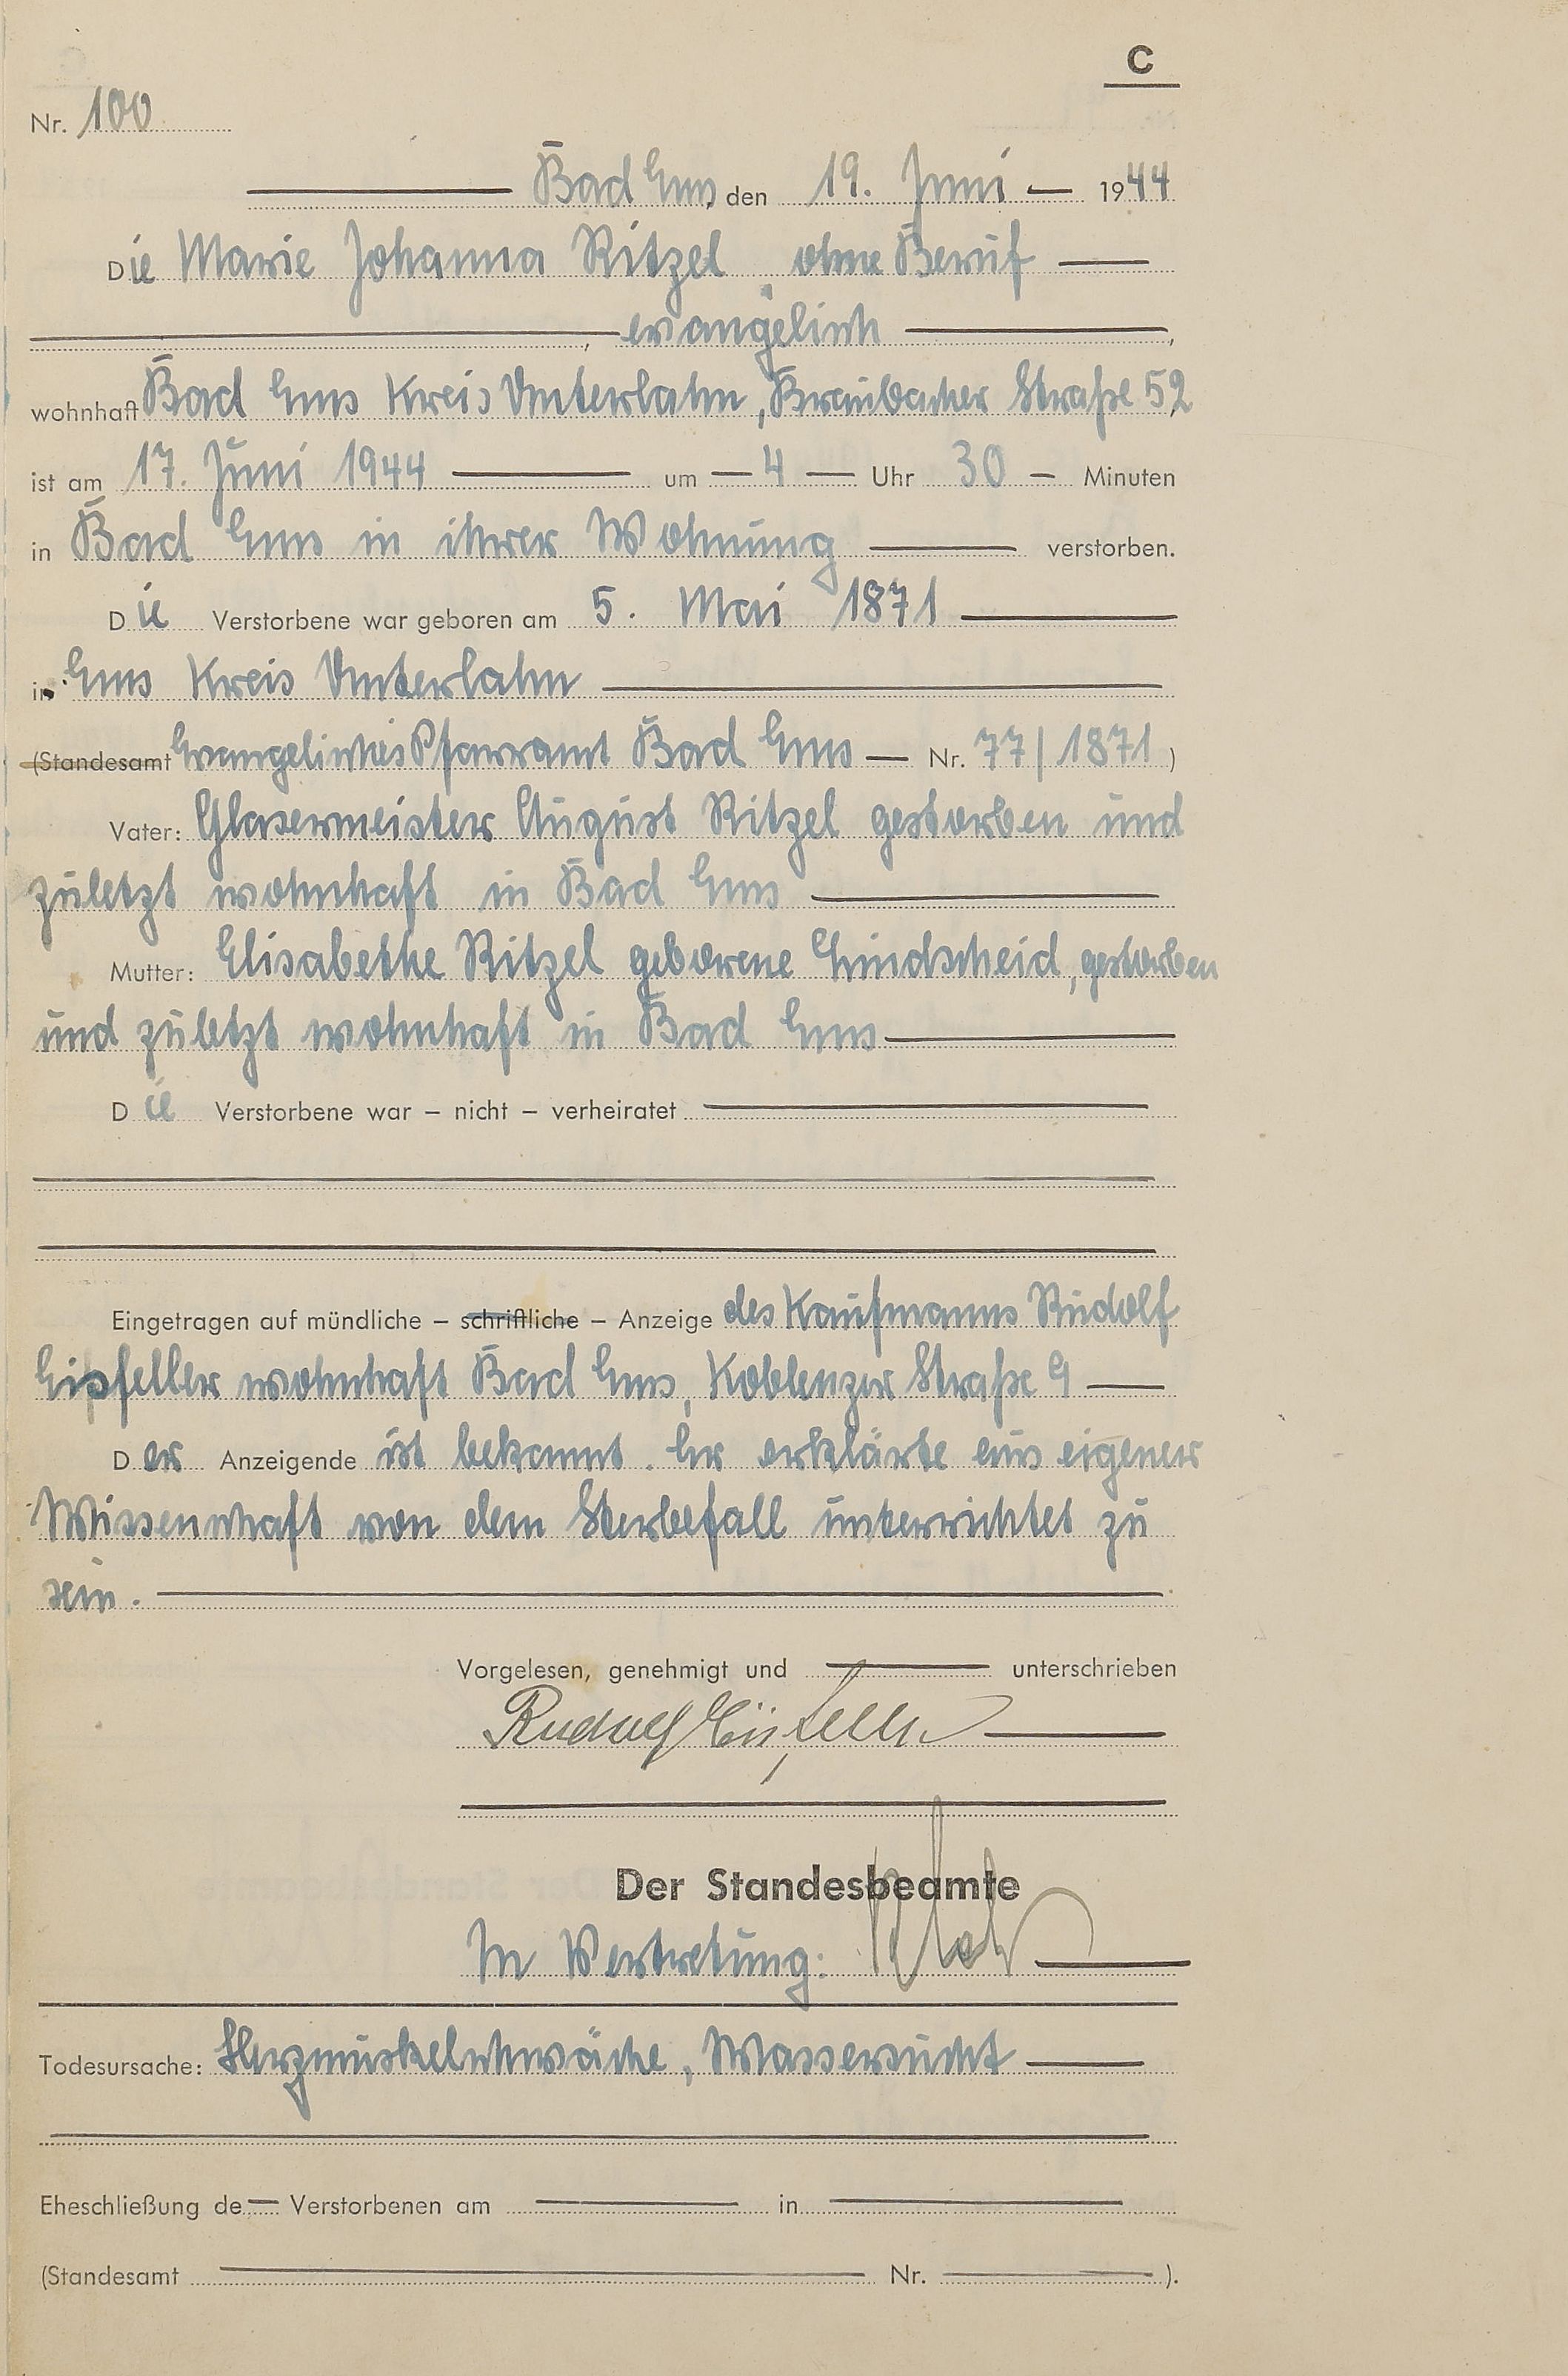 C
Nr. 100
Bad Ems, den 19. Juni 1944
Die Marie Johanna Ritzel, ohne Beruf
, evangelisch ,
wohnhaft Bad Ems Kreis Unterlahn, Braubacher Straße 52
ist am 17. Juni 1944 um 4 Uhr 30 Minuten
in Bad Ems in ihrer Wohnung verstorben.
Die Verstorbene war geboren am 5. Mai 1871
in Ems Kreis Unterlahn
(Standesamt Evangelisches Pfarramt Bad Ems — Nr. 77/1871)
Vater: Glasermeister August Ritzel gestorben und
zuletzt wohnhaft in Bad Ems
Mutter: Elisabethe Ritzel geborene Lindscheid, gestorben
und zuletzt wohnhaft in Bad Ems
Die Verstorbene war – nicht – verheiratet
Eingetragen auf mündliche – schriftliche – Anzeige des Kaufmanns Rudolf
wohnhaft Bad Ems, Koblenzer Straße 9
Der Anzeigende ist bekannt. Er erklärte aus eigener
Wissenschaft von dem Sterbefall unterrichtet zu
sein.
Vorgelesen, genehmigt und unterschrieben
Rudolf
Der Standesbeamte
In Vertretung:
Todesursache: Herzmuskelschwäche, Wassersucht
Eheschließung de— Verstorbenen am in
(Standesamt Nr. ).